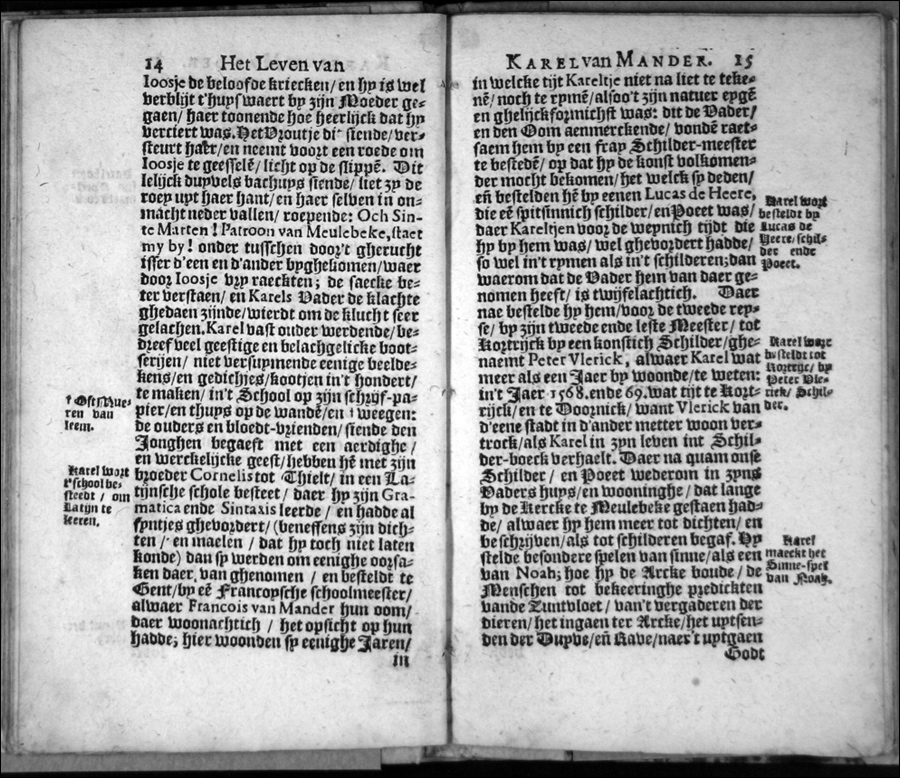 14 Het Leven van
Ioosje de beloofde kriecken/ en hy is wel
verblijt t'huyswaert by zijn Moeder ge-
gaen/ haer toonende hoe heerlijck dat hy
verciert was. Het Vroutje dit siende/ ver-
steurt haer/ en neemt voort een roede om
Ioosje te geesselē/ licht op de slippē. Dit
lelijck duyvels bachuys siende/ liet zy de
roey upt haer hant/ en haer selven in on-
macht neder vallen/ roepende: Och Sin-
te Marten! Patroon van Meulebeke, staet
my by! onder tusschen door't gherucht
isser d'een en d'ander byghekomen/ waer
door Ioosje vry raeckten; de saecke be-
ter verstaen/ en Karels Vader de klachte
ghedaen zijnde/ wierdt om de klucht seer
gelachen. Karel vast ouder werdende/ be-
dreef veel geestige en belachgelicke boot-
serijen/ niet versuymende eenige beelde-
kens/ en gedichjes/ kootjen in't hondert/
te maken/ in't School op zijn schrijf-pa-
pier/ en thuys op de wandē/ en † weegen:
de ouders en bloedt-vrienden/ siende den
Jonghen begaeft met een aerdighe/
en werckelijcke geest/ hebben hē met zijn
broeder Cornelis tot Thielt/ in een La-
tijnsche schole besteet/ daer hy zijn Gra-
matica ende Sintaxis leerde/ en hadde al
fyntjes ghevordert/ (beneffens zijn dich-
ten/ en maelen/ dat hy toch niet laten
konde) dan sy werden om eenighe oorsa-
ken daer, van ghenomen/ en besteldt te
Gent/ by eē Francoysche schoolmeester/
alwaer Francois van Mander hun oom/
daer woonachtich/ het opsicht op hun
hadde; hier woonden sy eenighe Jaren/
in
† Oft Mue-
ren van
leem.
Karel wort
t'school be-
steedt/ om
Latijn te
leeren.
KAREL van MANDER. 15
in welcke tijt Kareltje niet na liet te teke-
nē/ noch te rymē/ alsoo't zijn natuer eygē
en ghelijckformichst was: dit de Vader/
en den Oom aenmerckende/ vondē raet-
saem hem by een fray Schilder-meester
te bestedē/ op dat hy de konst volkomen-
der mocht bekomen/ het welck sy deden/
eñ bestelden hē by eenen Lucas de Heere,
die eē spitsinnich schilder/ en Poeet was/
daer Kareltjen voor de weynich tijdt die
hy by hem was/ wel ghevordert hadde/
so wel in't rymen als in't schilderen; dan
waerom dat de Vader hem van daer ge-
nomen heeft/ is twijfelachtich. Daer
nae bestelde hy hem/ voor de tweede rey-
se/ by zijn tweede ende leste Meester/ tot
Kortrijck by een konstich Schilder/ ghe-
naemt Peter Vlerick, alwaer Karel wat
meer als een Jaer by woonde/ te weten:
in't Jaer 1568. ende 69. wat tijt te Kort-
rijck/ en te Doornick/ want Vlerick van
d'eene stadt in d'ander metter woon ver-
trock/ als Karel in zyn leven int Schil-
der-boeck verhaelt. Daer na quam onse
Schilder/ en Poeet wederom in zyns
Vaders huys/ en wooninghe/ dat lange
by de Kercke te Meulebeke gestaen had-
de/ alwaer hy hem meer tot dichten/ en
beschrijven/ als tot schilderen begaf. Hy
stelde besondere spelen van sinne/ als een
van Noah; hoe hy de Arcke boude/ de
Menschen tot bekeeringhe predickten
vande Suntvloet/ van't vergaderen der
dieren/ het ingaen ter Arcke/ het uytsen-
den der Duyve/ eñ Rave/ naer't uytgaen
Godt
Karel wort
besteldt by
Lucas de
Heere/ schil-
der ende
Poeet.
Karel wort
besteldt tot
Kortryc/ by
Peter Vle-
riek/ Schil-
der.
Karel
maeckt het
Sinne-spel
van Noah.